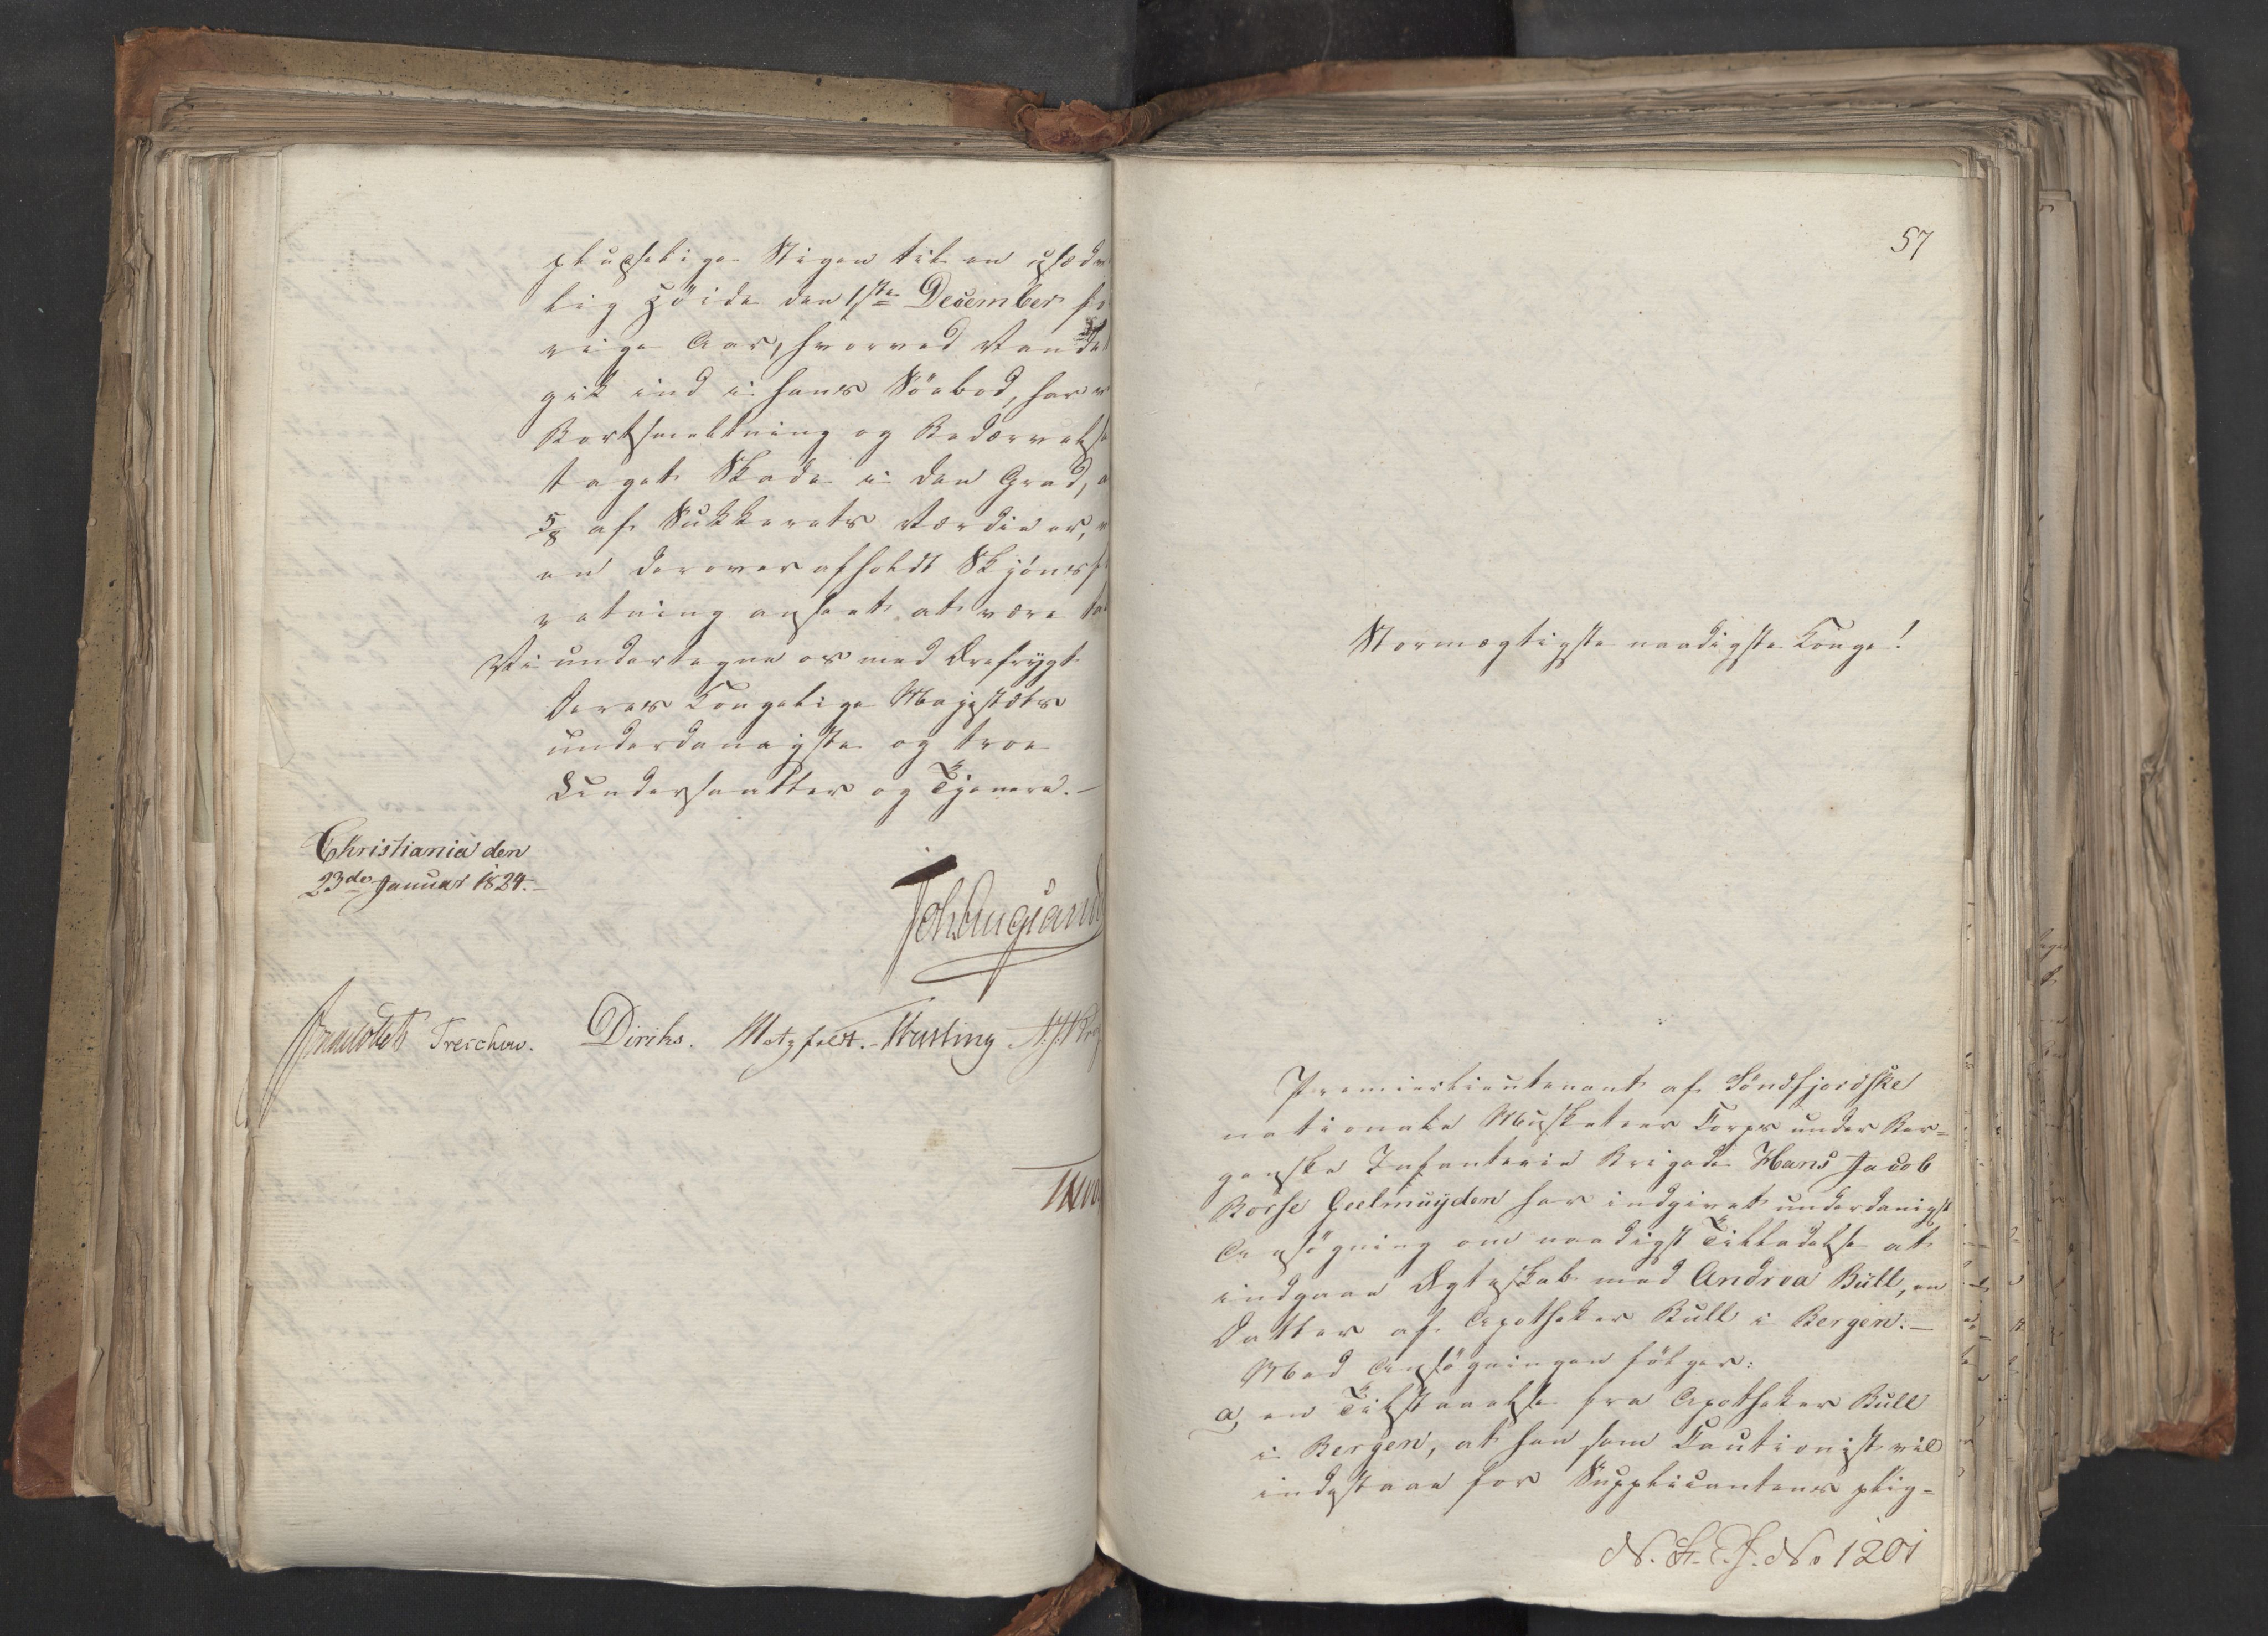 pludselige Stigen til en usædv
lig Høide den 1ste December for
rige Aar, hvorved Vandet
gik ind i hans Søebod, har v
Bortsmeltning og Bedærvelse
taget Skade i den Grad, a
5/8 af Sukkerets Værdie er, v
en derover afholdt Skjønsf
retning anseet at være ta
Vi undertegne os med Ærefrygt
Deres Kongelige Majestæts
underdanigste og troe
Undersaatter og Tjenere.-
Christiania den
23de Januar 1824.-
Joh. Aug. Sand
Treschow. Diriks. Motzfeldt. Fasting
57
Stormægtigste naadigste Konge!
Premierlieutenant af Søndfjordske
nationale Musketeer Corps under Ber=
genske Infanterie Brigade Hans Jacob
Børse Geelmuyden har indgivet underdanigst
Ansøgning om naadigst Tilladelse at
indgaae Ægteskab med Andrea Bull, en
Datter af Apotheker Bull i Bergen.-
Med Ansøgningen følger:
a, en Tilstaaelse fra Apotheker Bull
i Bergen, at han som Cautionist vil
indestaae for Supplicantens plig=
No 1201